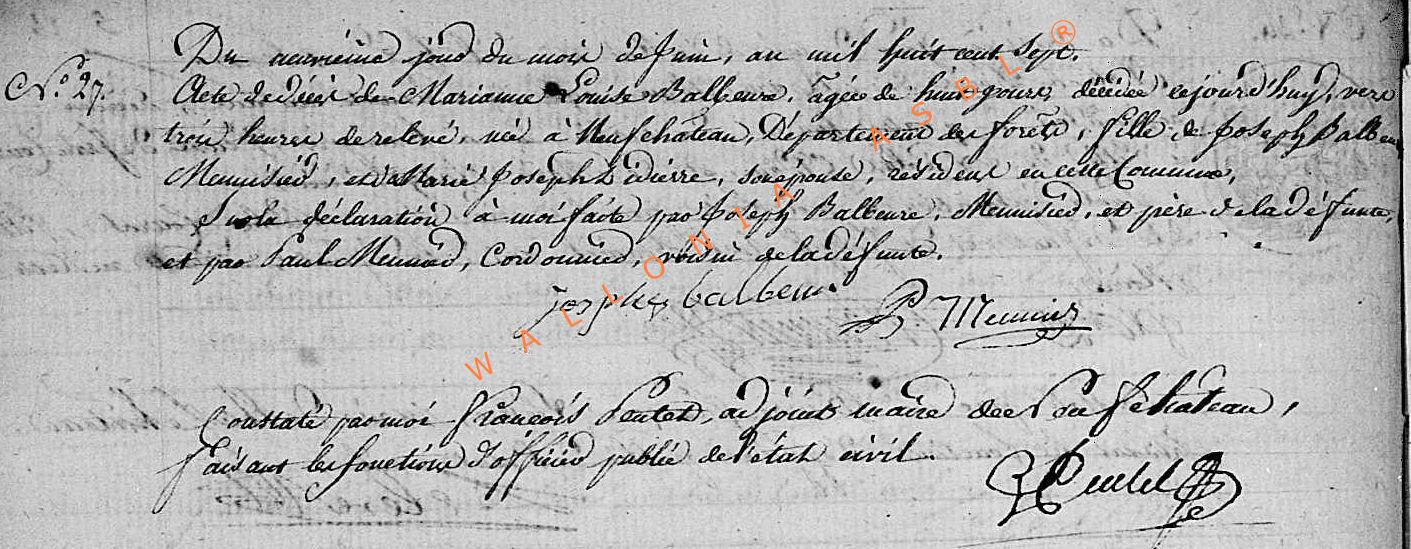 Du neuvième jour du mois de Juin, an mil huit cent Sept.
N.° 27. Acte de décès de Marianne Louise Balbeure, agée de huit jours, décédée cejourd'huy, vers
trois heures de relevé, née à Neufchâteau, Département des forêts, fille de Joseph Balbeure
Menuisier, et de Marie Joseph , son épouse, résidens en cette Commune,
Sur la déclaration à moi faite par Joseph Balbeure, Menuisier, et père de la défunte,
et par Paul Meunier, Cordonnier, voisin de la défunte.
joseph balbeur P Meunier
Constaté par moi françois Pentet, adjoint maire de Neufchateau,
faisant les fonctions d'officier public de l'état civil.
WALLONIA ASBL ®